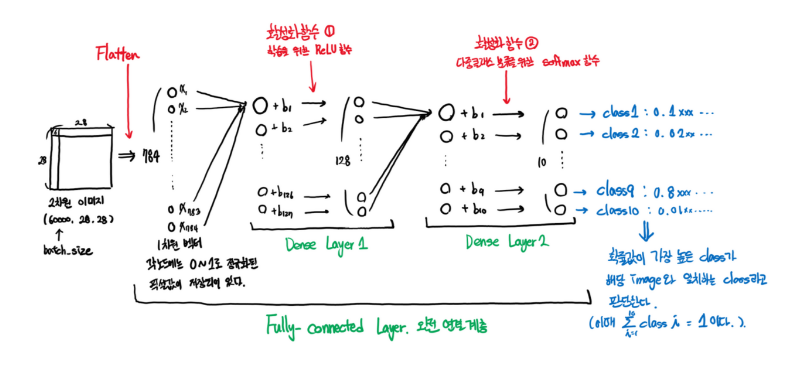 활성화 함수 ①
학습을 위한 ReLU 함수
활성화 함수 ②
다중클래스 분류를 위한 softmax 함수
Flatten
28
28
784
x₁
x₂
x₇₈₃
x₇₈₄
+ b₁
+ b₂
128
+ b₁
+ b₂
10
+ b₉
+ b₁₀
→ class1 : 0.1xxx ...
→ class2 : 0.02xx ...
→ class9 : 0.8xxx ...
→ class10 : 0.01xx.....
2차원 이미지
(60000, 28, 28)
batch_size
1차원 벡터
각 노드에는 0~1로 정규화된
픽셀값이 저장되어 있다.
Dense Layer 1
Dense Layer 2
확률값이 가장 높은 class가
해당 image와 일치하는 class라고
판단한다.
(이때 ∑ᵢ₌₁¹⁰ class i = 1 이다.).
Fully-connected Layer. 완전 연결 계층